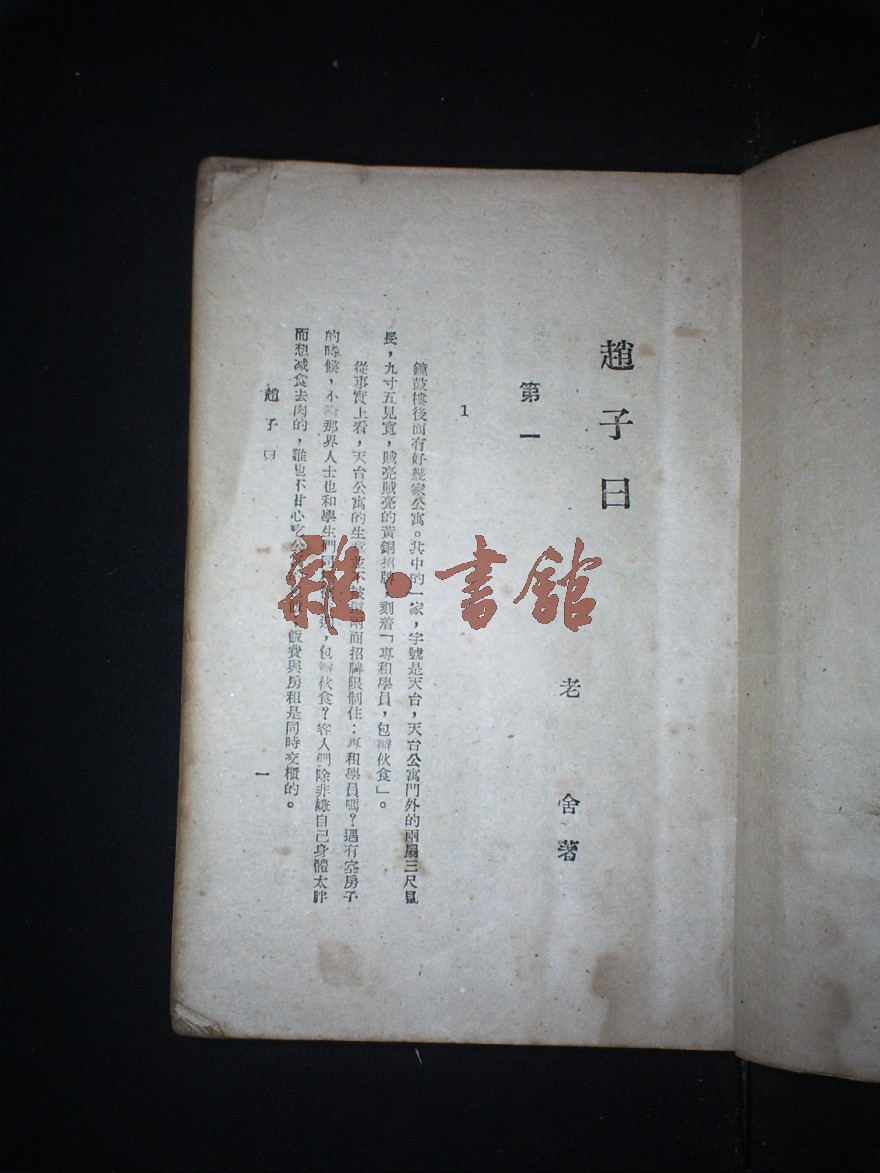 趙子曰
老舍著
第一
1
鐘鼓樓後面有好幾家公寓。其中的一家,字號是天台,天台公寓門外的兩扇三尺見
長,九寸五見寬,賊亮賊亮的黃銅招牌,刻着「專租學員,包辦伙食」。
從事實上看,天台公寓的生意並不被這兩面招牌限制住:專租學員嗎?遇有空房子
的時候,不論那界人士也和學生們同,包辦伙食?客人們除非嫌自己身體太胖
而想减食去肉的,誰也不甘心吃公,飯費與房租是同時交櫃的。
趙子曰
一
雜·書館